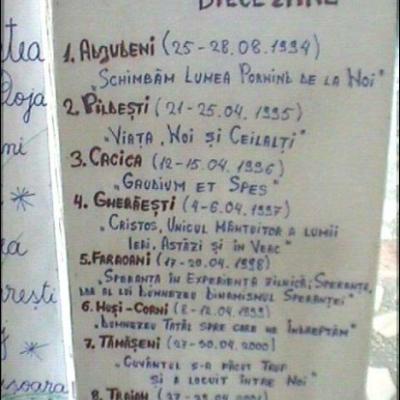 DIECEZANE
1. ADJUDENI (25-28.08.1994)
"SCHIMBĂM LUMEA PORNIND DE LA NOI"
2. PILDEȘTI (21-25.04.1995)
"VIAȚA, NOI ȘI CEILALȚI"
3. CACICA (12-15.04.1996)
"GAUDIUM ET SPES"
4. GHERĂEȘTI (4-6.04.1997)
"CRISTOS, UNICUL MÂNTUITOR A LUMII
IERI, ASTĂZI ȘI ÎN VEAC"
5. FARAOANI (17-20.04.1998)
"SPERANȚA ÎN EXPERIENȚA ZILNICĂ; SPERANȚA,
DAR AL LUI DUMNEZEU DINAMISMUL SPERANȚEI"
6. HUȘI-CORNI (8-12.04.1999)
"DUMNEZEU TATĂL SPRE CARE NE ÎNDREPTĂM"
7. TĂMĂȘENI (27-30.04.2000)
"CUVÂNTUL S-A FĂCUT TRUP
ȘI A LOCUIT ÎNTRE NOI"
8. TRAIAN
tea
Ploja
ni
ea
rești
ișoara